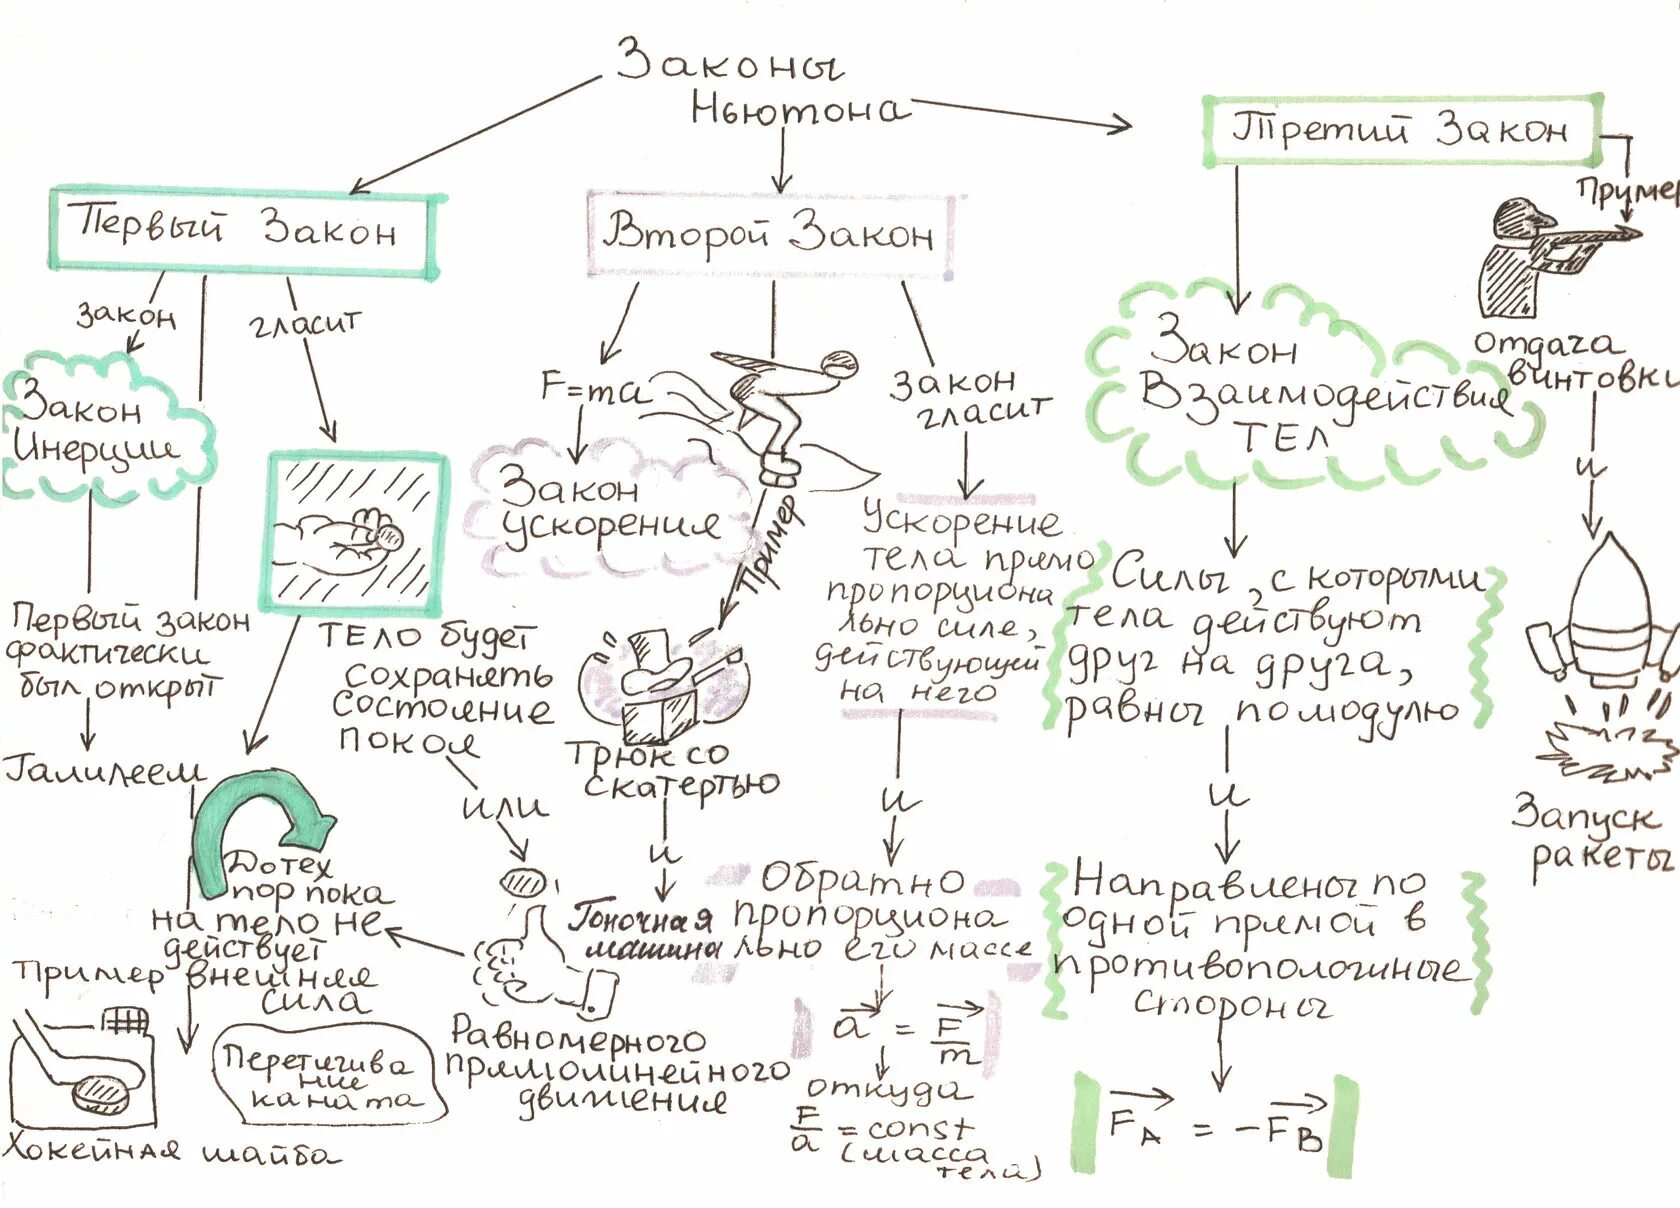 Законы
Ньютона
Первый Закон
закон
гласит
Закон
Инерции
Первый закон
фактически
был открыт
Галилеем
Тело будет
сохранять
состояние
покоя
или
Равномерного
прямолинейного
движения
До тех
пор пока
на тело не
действует
внешняя
сила
Пример
Хокейная шайба
Перетягива
ние
каната
Второй Закон
F=ma
Закон
ускорения
Пример
Трюк со
скатертью
и
Гоночная
машина
Закон
гласит
Ускорение
тела прямо
пропорциона
льно силе,
действующей
на него
и
Обратно
пропорциона
льно его массе
a = F/m
откуда
F/a = const
(масса
тела)
Третий Закон
Закон
Взаимодействия
ТЕЛ
Силы, с которыми
тела действуют
друг на друга,
равны по модулю
и
Направлены по
одной прямой в
противоположные
стороны
FA = -FB
Пример
отдача
винтовки
и
Запуск
ракеты